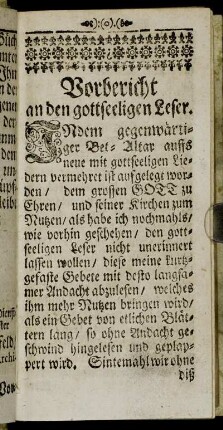 :(o).
Vorbericht
an den gottseeligen Leser.
INdem gegenwärti-
ger Bet-Altar auffs
neue mit gottseeligen Lie-
dern vermehret ist aufgelegt wor-
den / dem grossen GOTT zu
Ehren / und seiner Kirchen zum
Nutzen / als habe ich nochmahls /
wie vorhin geschehen / den gott-
seeligen Leser nicht unerinnert
lassen wollen / diese meine kurtz-
gefaste Gebete mit desto langsa-
mer Andacht abzulesen / welches
ihm mehr Nutzen bringen wird /
als ein Gebet von etlichen Blät-
tern lang / so ohne Andacht ge-
schwind hingelesen und geplap-
pert wird. Sintemahl wir ohne
diß